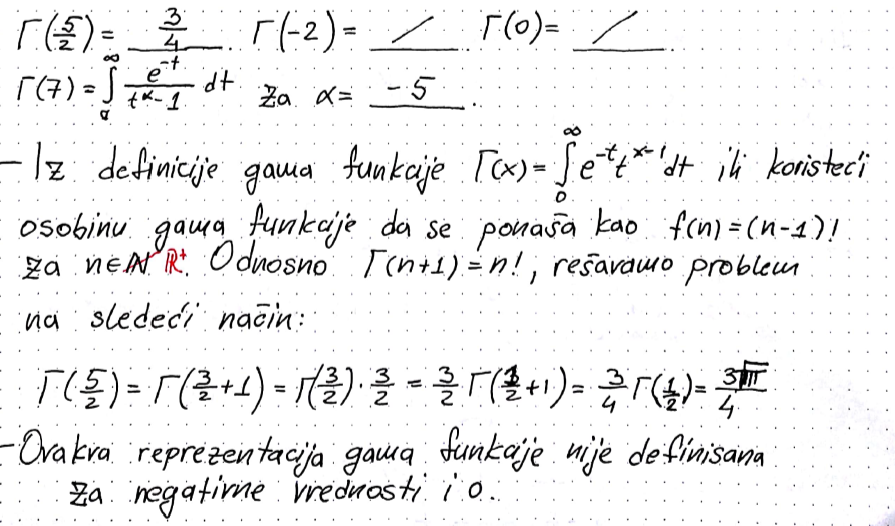 Γ(5/2) = 3/4 . Γ(-2) = / . Γ(0) = / .
Γ(7) = ∫_0^∞ e^{-t}/(t^α - 1) dt za α = -5 .
- Iz definicije gama funkcije Γ(x) = ∫_0^∞ e^{-t} t^{x-1} dt ili koristeći
osobinu gama funkcije da se ponaša kao f(n) = (n-1)!
za n∈ℝ⁺. Odnosno Γ(n+1) = n!, rešavamo problem
na sledeći način:
Γ(5/2) = Γ(3/2 + 1) = Γ(3/2) · 3/2 = 3/2 Γ(1/2 + 1) = 3/4 Γ(1/2) = 3√π/4
- Ovakva reprezentacija gama funkcije nije definisana
za negativne vrednosti i 0.